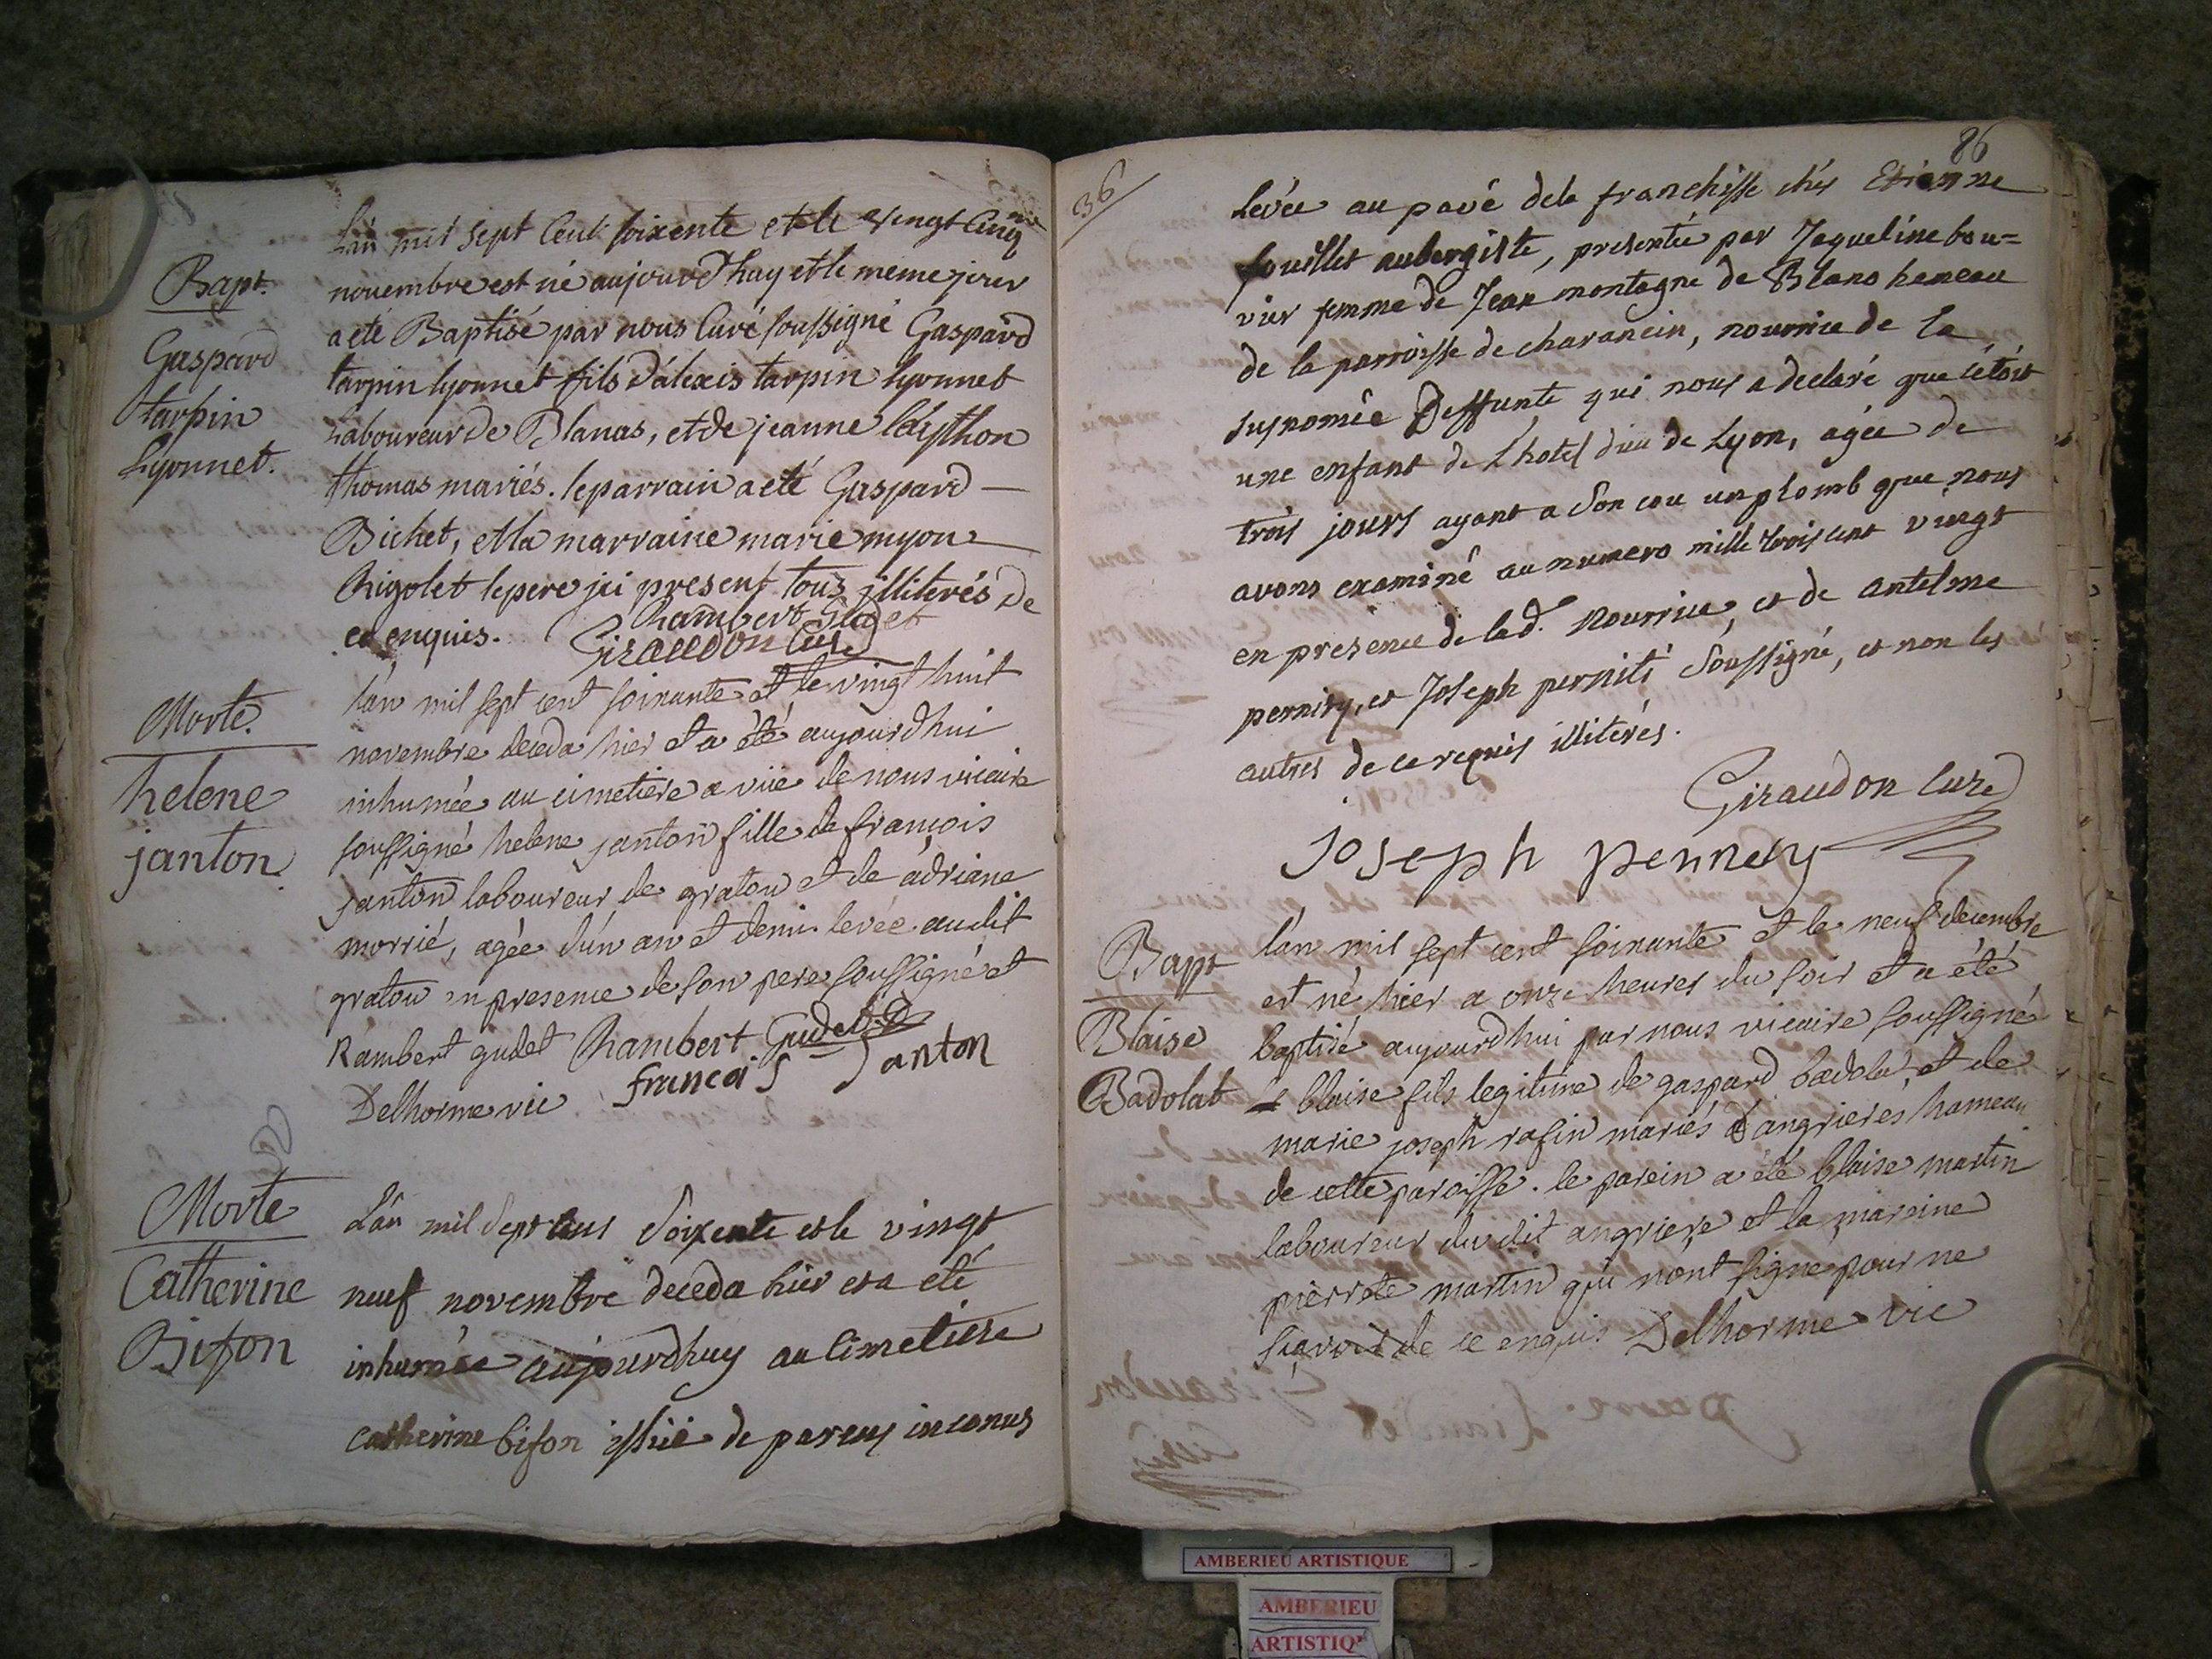 Bapt.
Gaspard
tarpin
Lyonnet.
L'an mil sept Cent soixente et le vingt Cinq
novembre est né aujourd'huy et le meme jour
a eté Baptisé par nous Curé soussigné Gaspard
tarpin lyonnet fils d'alexis tarpin lyonnet
Laboureur de Blanas, et de jeanne
thomas mariés. le parrain a eté Gaspard
Bichet, et la marraine marie myon
Rigolet le pere ici present tous illiterés de
ce enquis.
Rambert Gudet
Giraudon Curé
Morte.
helene
janton
lan mil sept cent soixante et le vingt huit
novembre deceda hier et a été aujourdhui
inhumée au cimetiere a vüe de nous vicaire
soussigné helene janton fille de françois
janton laboureur de gratou et de adriane
morrié, agée d'un an et demi levée audit
gratou en presence de son pere soussigné et
Rambert gudet Rambert Gudet
françois Janton
Delhorme vic
Morte
Catherine
Bifon
L'an mil sept cens soixente et le vingt
neuf novembre deceda hier et a eté
inhumée aujourdhuy au cimetiere
catherine bifon issüe de parens inconus
36
86
Levée au pavé de la franchisse chés Etienne
fouillet aubergiste, presentée par Jaqueline bou=
vier femme de Jean montagne de Blano hameau
de la parroisse de charancin, nourrice de la
susnomée Deffunte qui nous a declaré que cétoit
une enfant de L'hotel dieu de Lyon, agée de
trois jours ayant a son cou un plomb que nous
avons examiné au numero mille trois cent vingt
en presence de lad. Nourrice, et de antelme
pernity, et Joseph perniti soussigné, et non les
autres de ce requis illiterés.
Giraudon Curé
Joseph pennety
Bapt
Blaise
Badolat
l'an mil sept cent soixante et le neuf decembre
est né hier a onze heures du soir et a été
baptisé aujourdhui par nous vicaire soussigné
blaise fils legitime de gaspard badola, et de
marie joseph rafin mariés d'angrieres hameau
de cette paroisse. le parein a été blaise martin
laboureur du dit angriere et la mareine
pierrete martin qui n'ont signe pour ne
sçavoir de ce enquis Delhorme vic
AMBERIEU ARTISTIQUE
AMBERIEU
ARTISTIQ